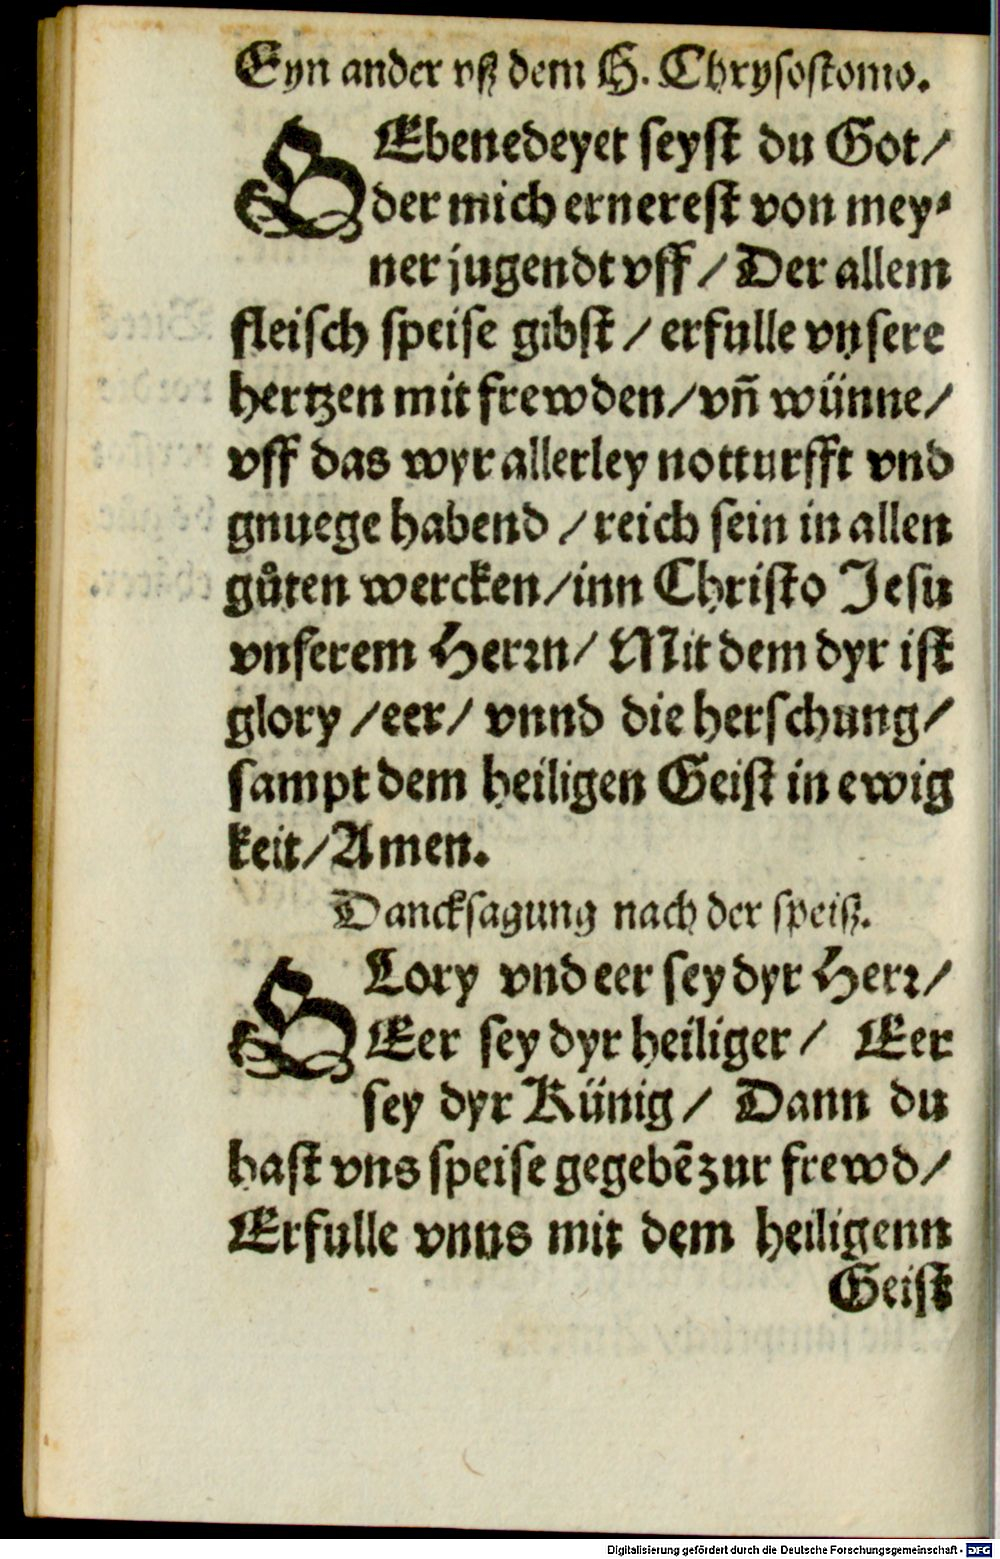 Eyn ander vſz dem H. Chryſoſtomo.
GEbenedeyet ſeyſt du Got/
der mich ernereſt von mey⸗
ner jugendt vff / Der allem
fleiſch ſpeiſe gibſt / erfulle vnſere
hertzen mit frewden/vn̄ wünne/
vff das wyr allerley notturfft vnd
gnuege habend / reich ſein in allen
gůten wercken/inn Chriſto Jeſu
vnſerem Herꝛn/ Mit dem dyr iſt
glory /eer/ vnnd die herſchung/
ſampt dem heiligen Geiſt in ewig
keit/Amen.
Danckſagung nach der ſpeiſz.
GLory vnd eer ſey dyr Herꝛ/
Eer ſey dyr heiliger / Eer
ſey dyr Künig / Dann du
haſt vns ſpeiſe gegebē zur frewd/
Erfulle vnns mit dem heiligenn
Geiſt
Digitalisierung gefördert durch die Deutsche Forschungsgemeinschaft - DFG